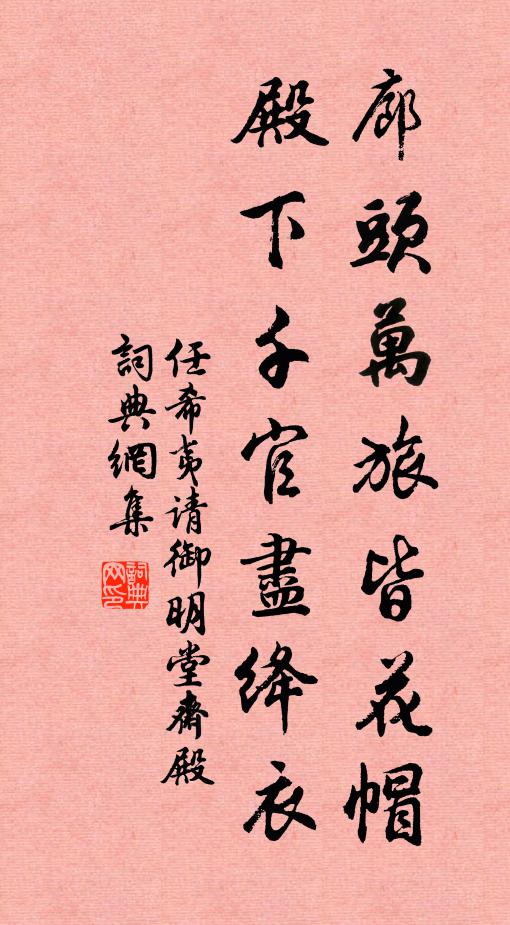 廊頭萬旅皆花帽
殿下千官盡绛衣
任希夷请御明堂齋殿
詞典網集
詞典網印